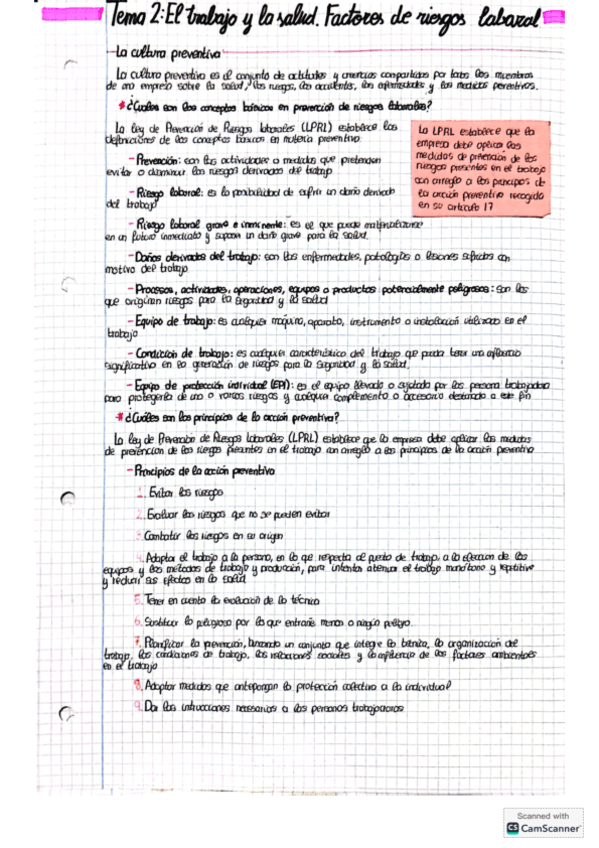 Tema 2: El trabajo y la salud. Factores de riesgos laboral
La cultura preventiva
La cultura preventiva es el conjunto de actitudes y creencias compartidas por todos los miembros
de una empresa sobre la salud, los riesgos, los accidentes, las enfermedades y las medidas preventivas.
* ¿Cuáles son los conceptos básicos en prevención de riesgos laborales?
La ley de Prevención de Riesgos laborales (LPRL) establece las
definiciones de los conceptos básicos en materia preventiva:
- Prevención: son las actividades o medidas que pretenden
evitar o disminuir los riesgos derivados del trabajo
- Riesgo laboral: es la posibilidad de sufrir un daño derivado
del trabajo
- Riesgo laboral grave e inminente: es el que puede materializarse
en un futuro inmediato y supone un daño grave para la salud.
La LPRL establece que la
empresa debe aplicar las
medidas de prevención de los
riesgos presentes en el trabajo
con arreglo a los principios de
la acción preventiva recogida
en su artículo 17
- Daños derivados del trabajo: son las enfermedades, patologías o lesiones sufridas con
motivo del trabajo
- Procesos, actividades, operaciones, equipos o productos potencialmente peligrosos: son los
que originan riesgos para la seguridad y la salud
- Equipo de trabajo: es cualquier máquina, aparato, instrumento o instalación utilizada en el
trabajo
- Condición de trabajo: es cualquier característica del trabajo que pueda tener una influencia
significativa en la generación de riesgos para la seguridad y la salud.
- Equipo de protección individual (EPI): es el equipo llevado o sujetado por las persona trabajadora
para protegerla de uno o varios riesgos y cualquier complemento o accesorio destinado a este fin
* ¿Cuáles son los principios de la acción preventiva?
La ley de Prevención de Riesgos laborales (LPRL) establece que la empresa debe aplicar las medidas
de prevención de los riesgos presentes en el trabajo con arreglo a los principios de la acción preventiva
- Principios de la acción preventiva
1. Evitar los riesgos
2. Evaluar los riesgos que no se pueden evitar
3. Combatir los riesgos en su origen
4. Adaptar el trabajo a la persona, en lo que respecta al puesto de trabajo, a la elección de los
equipos y los métodos de trabajo y producción, para intentar atenuar el trabajo monótono y repetitivo
y reducir sus efectos en la salud
5. Tener en cuenta la evolución de la técnica
6. Sustituir lo peligroso por lo que entrañe menos o ningún peligro.
7. Planificar la prevención, buscando un conjunto que integre la técnica, la organización del
trabajo, las condiciones de trabajo, las relaciones sociales y la influencia de los factores ambientales
en el trabajo
8. Adoptar medidas que antepongan la protección colectiva a la individual
9. Dar las intrucciones necesarias a las personas trabajadoras
Scanned with
CS CamScanner